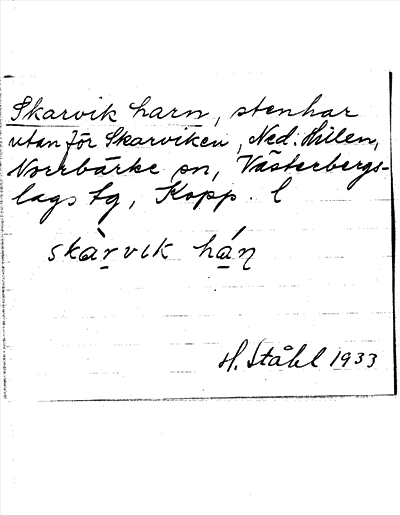 Skarvik harn, stenhar
utanför Skarviken, Ned. Hillen,
Norrbärke sn, Västerbergs-
lags tg, Kopp. l
skàr̲vık há̲ṇ
H. Ståhl 1933